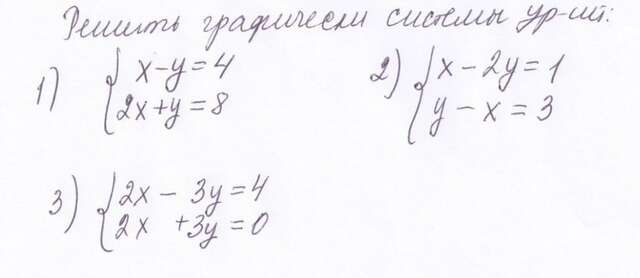 Решить графически системы ур-ий:
1) { x - y = 4
2x + y = 8
2) { x - 2y = 1
y - x = 3
3) { 2x - 3y = 4
2x + 3y = 0